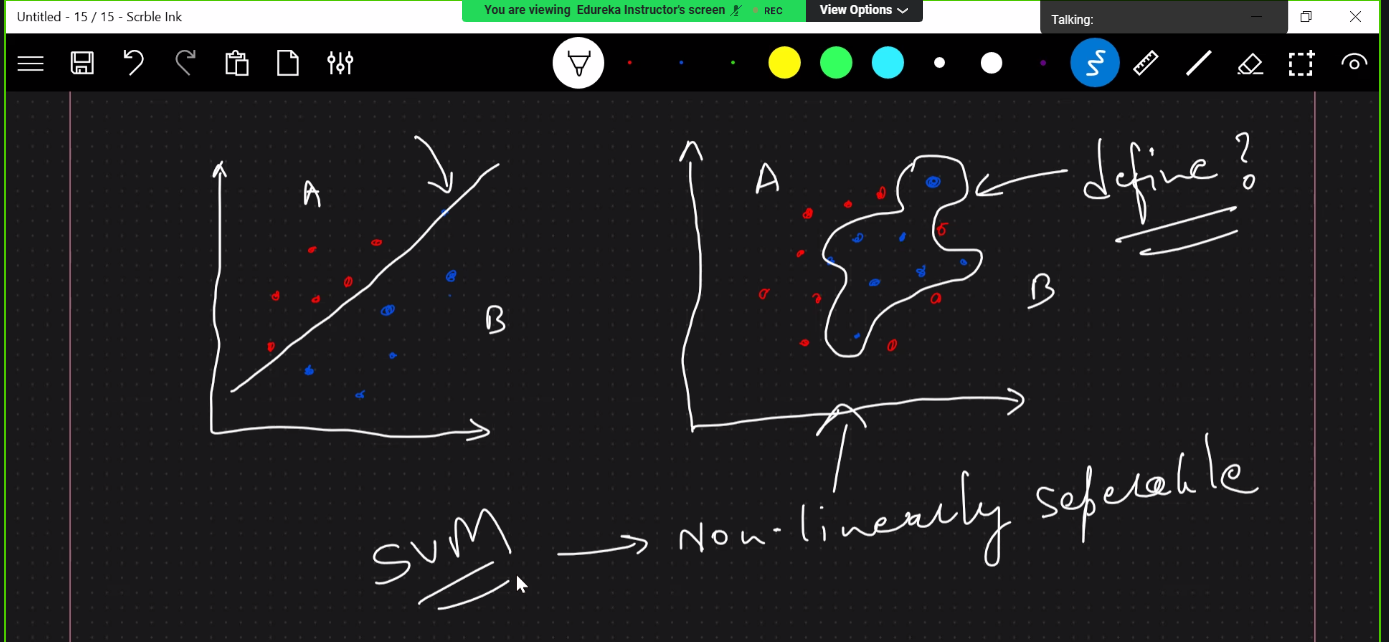 Untitled - 15 / 15 - Scrble Ink
You are viewing Edureka Instructor's screen
REC
View Options
Talking:
A
B
A
B
define?
SVM → Non-linearly seperable